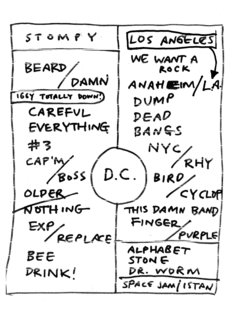 STOMPY
BEARD/
DAMN
IGGY TOTALLY DOWN!
CAREFUL
EVERYTHING
#3
CAP'M/
BOSS
OLDER
NOTHING
EXP/
REPLACE
BEE
DRINK!
D.C.
LOS ANGELES
WE WANT A
ROCK
ANAHEIM/LA
DUMP
DEAD
BANGS
NYC/
RHY
BIRD/
CYCLOP
THIS DAMN BAND
FINGER/
PURPLE
ALPHABET
STONE
DR. WORM
SPACE JAM/ISTAN